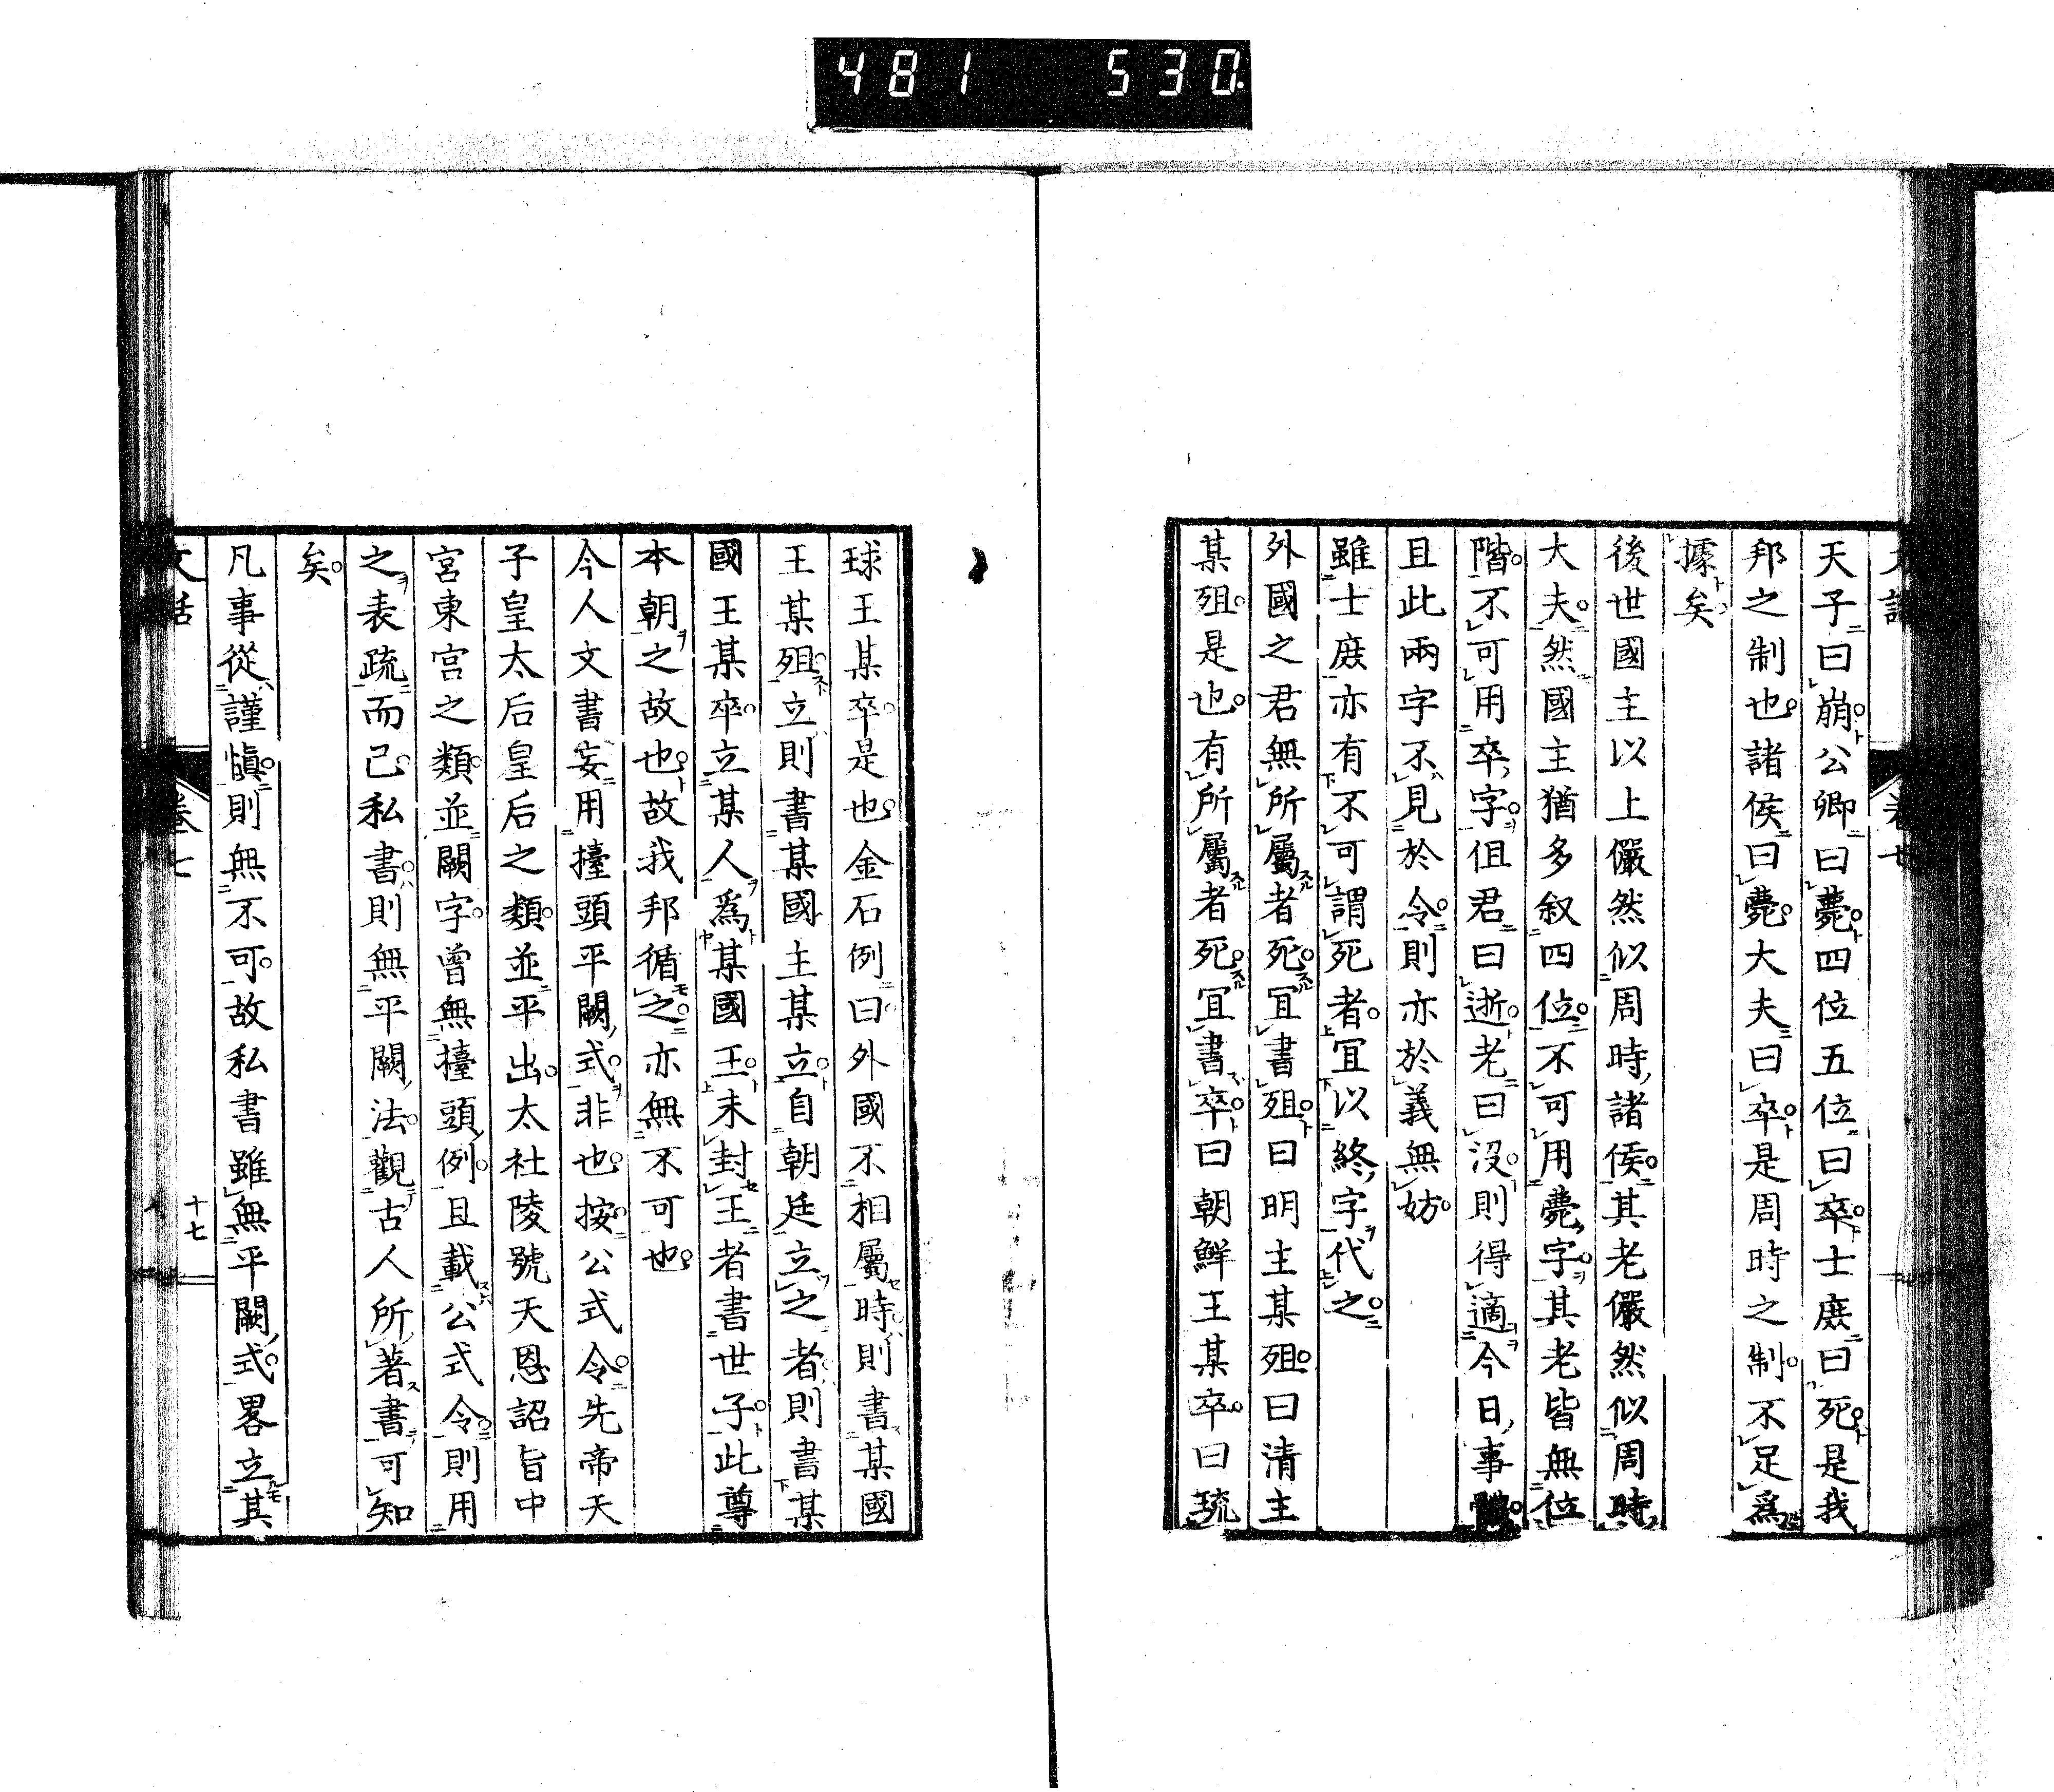 481 530
天子曰崩公卿曰薨四位五位曰卒士庶曰死是我
邦之制也諸侯曰薨大夫曰卒是周時之制不足爲
據矣
後世國主以上儼然似周時諸侯其老儼然似周時
大夫然國主猶多叙四位不可用薨字其老皆無位
階不可用卒字但君曰逝老曰沒則得適今日事
且此兩字不見於令則亦於義無妨
雖士庶亦有不可謂死者冝以終字代之
外國之君無所屬者死冝書殂曰明主某殂曰清主
某殂是也有所屬者死冝書卒曰朝鮮王某卒曰琉
球王某卒是也金石例曰外國不相屬時則書某國
王某殂立則書某國主某立自朝廷立之者則書某
國王某卒立某人爲某國王未封王者書世子此尊
本朝之故也故我邦循之亦無不可也
今人文書妄用擡頭平闕式非也按公式令先帝天
子皇太后皇后之類並平出太社陵號天恩詔旨中
宮東宮之類並闕字曾無擡頭例且載公式令則用
之表疏而已私書則無平闕法觀古人所著書可知
矣
凡事從謹愼則無不可故私書雖無平闕式畧立其
文話 卷七 十七